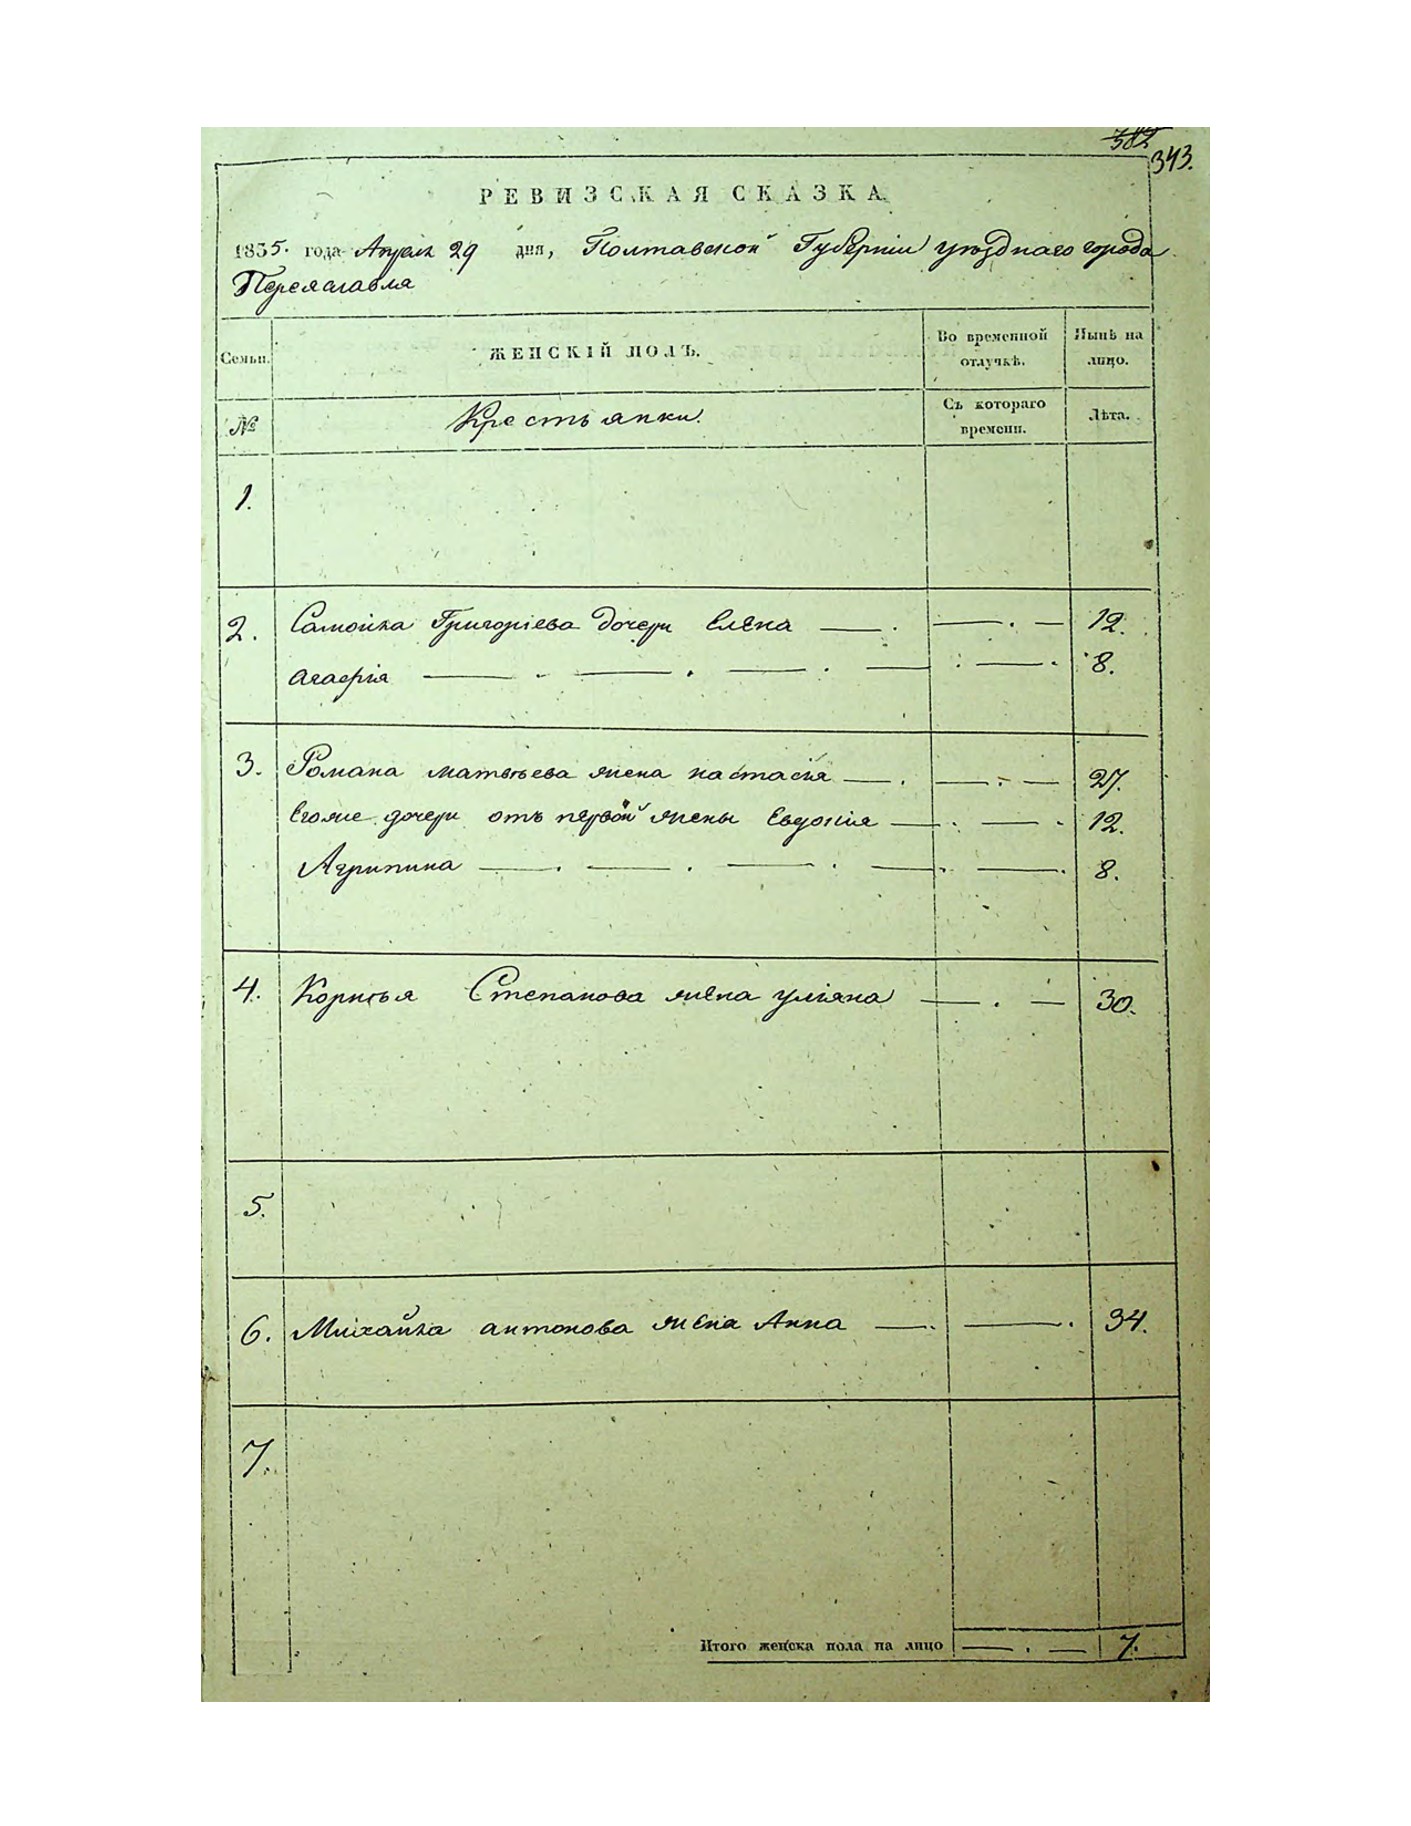 382
343.
РЕВИЗСКАЯ СКАЗКА
1835. года Апреля 29 дня, Полтавской Губернiи уѣзднаго города
Переяславля
Семьи.
ЖЕНСКIЙ ПОЛЪ.
Во временной отлучкѣ.
Нынѣ на лицо.
№
Крестьянки.
Съ котораго времени.
Лѣта.
1.
2. Самойла Григорiева дочери Елена — . — . — 12.
Агафiя — . — . — . — . — . 8.
3. Романа матвѣева жена настасiя — . — . — 27.
Егоже дочери отъ первой жены Евдокiя — . — . 12.
Агрипина — . — . — . — . — . 8.
4. Корнѣя Степанова жена улiяна — . — 30.
5.
6. Михайла антонова жена Анна — . — . 34.
7.
Итого женска пола на лицо — . — 7.